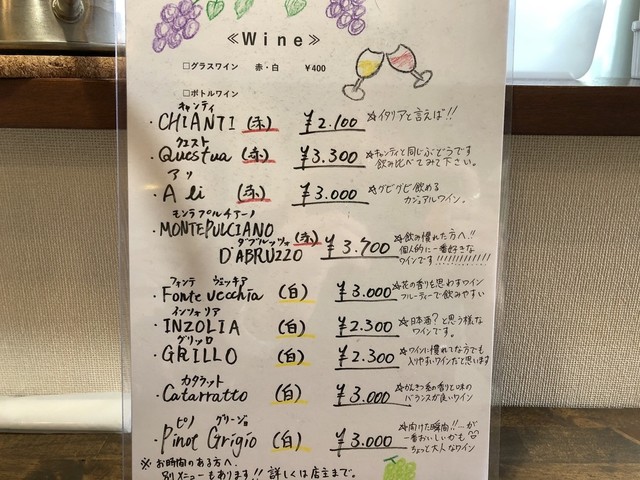 ≪Wine≫
□グラスワイン 赤・白 ¥400
□ボトルワイン
キャンティ
・CHIANTI (赤) ¥2.100 ☆イタリアと言えば!!
クエスト
・Questua (赤) ¥3.300 ☆キャンティと同じぶどうです
飲み比べてみて下さい。
アリ
・Ali (赤) ¥3.000 ☆グビグビ飲める
カジュアルワイン。
モンテプルチアーノ
・MONTEPULCIANO
ダブルッツォ
D'ABRUZZO (赤) ¥3.700 ☆飲み慣れた方へ!!
個人的に一番好きな
ワインです!!!!!!!!!!!!
フォンテ ヴェッキア
・Fonte vecchia (白) ¥3.000 ☆花の香りを思わすワイン
フルーティーで飲みやすい
インツォリア
・INZOLIA (白) ¥2.300 ☆日本酒?と思う様な
ワインです。
グリッロ
・GRILLO (白) ¥2.300 ☆ワインに慣れてな方でも
入りやすいワインだと思います
カタラット
・Catarratto (白) ¥3.000 ☆かんきつ系の香りと味の
バランスが良いワイン
ピノ グリージョ
・Pinot Grigio (白) ¥3.000 ☆向けた瞬間!!…が
一番おいしいかも
ちょっと大人なワイン
※お時間のある方へ、
別メニューもあります!!詳しくは店主まで。